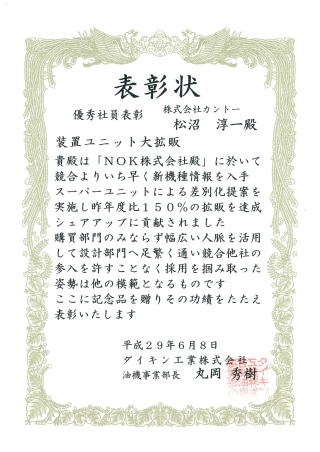 表彰状
優秀社員表彰
株式会社カントー
松沼 淳一殿
装置ユニット大拡販
貴殿は「NOK株式会社殿」に於いて
競合よりいち早く新機種情報を入手
スーパーユニットによる差別化提案を
実施し昨年度比150%の拡販を達成
シェアアップに貢献されました
購買部門のみならず幅広い人脈を活用
して設計部門へ足繁く通い競合他社の
参入を許すことなく採用を掴み取った
姿勢は他の模範となるものです
ここに記念品を贈りその功績をたたえ
表彰いたします
平成29年6月8日
ダイキン工業株式会社
油機事業部長 丸岡 秀樹